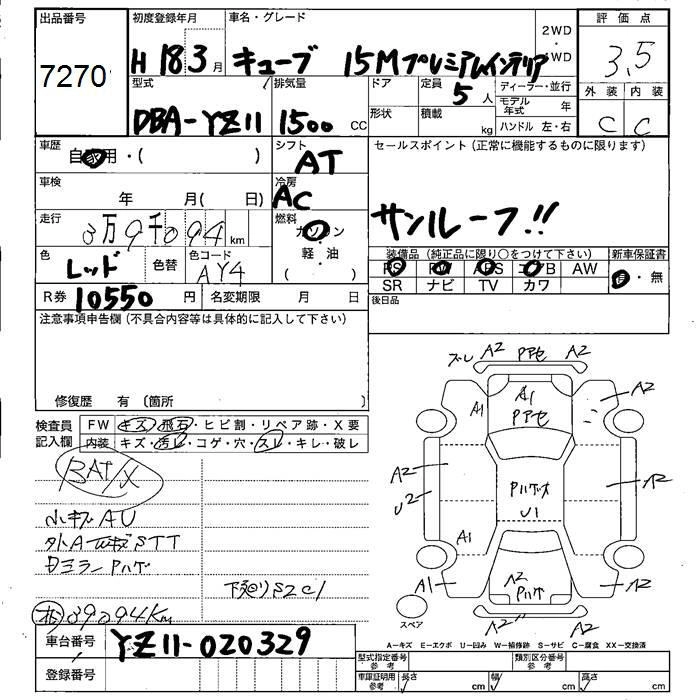 出品番号 7270
初度登録年月 H 18 3 月
車名・グレード キューブ 15Mプレミアムインテリア
2WD
4WD
評価点 3.5
外装 C 内装 C
型式 DBA-YZ11
排気量 1500 CC
ドア 形状
定員 5 人
積載 kg
ディーラー・並行
モデル年式 年
ハンドル 左・右
車歴 自家用・( )
シフト AT
セールスポイント (正常に機能するものに限ります)
サンルーフ!!
車検 年 月( 日)
冷房 AC
走行 3万9千094 km
燃料 ガソリン・軽油 ( )
色 レッド 色替 色コード AY4
装備品 (純正品に限り○をつけて下さい) 新車保証書
PS PW ABS エアB AW 有・無
SR ナビ TV カワ
R券 10550 円 名変期限 月 日
後日品
注意事項申告欄 (不具合内容等は具体的に記入して下さい)
修復歴 有 〔箇所 〕
検査員記入欄 FW キズ・飛石・ヒビ割・リペア跡・X要
内装 キズ・汚レ・コゲ・穴・スレ・キレ・破レ
BAT/X
小キズAU
下廻りS2C1
39094Km
A2 A2
A1 A1 A2
A2 U2 U1 A2
A1 A1 A2 A2
スペア A2 A2
A-キズ E-エクボ U-凹み W-補修跡 S-サビ C-腐食 XX-交換済
車台番号 YZ11-020329
登録番号
型式指定番号 参考 類別区分番号 参考
車庫証明用 参考 長さ cm 幅 cm 高さ cm